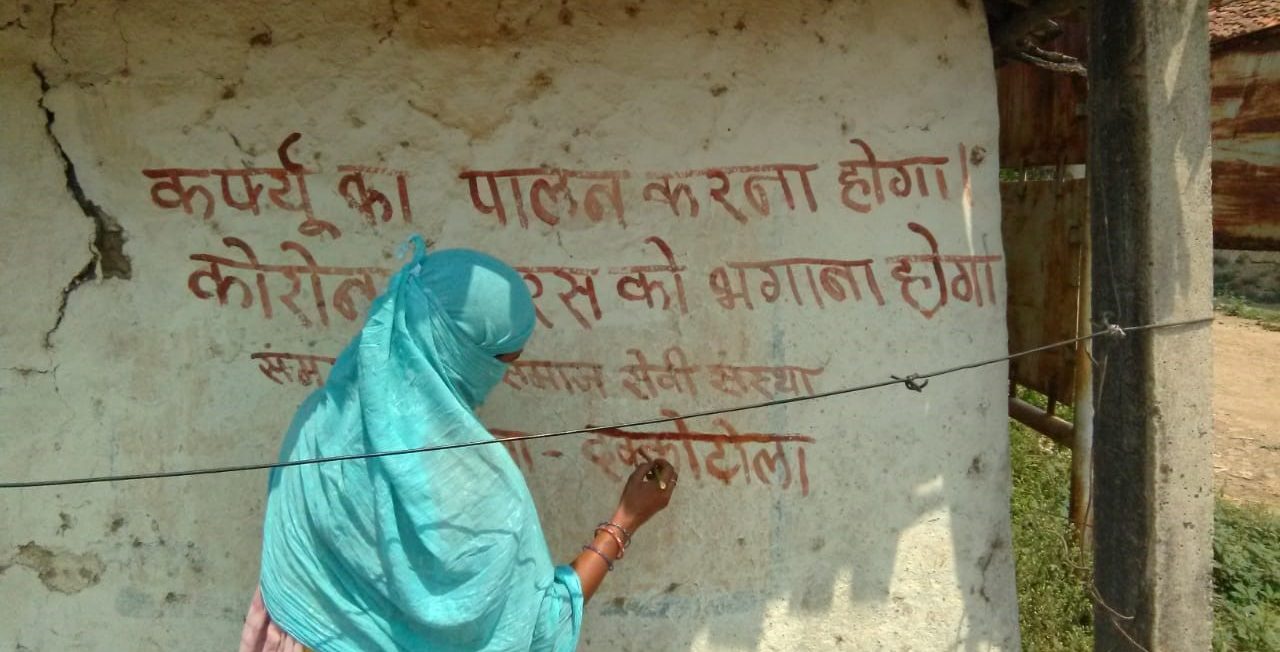 कर्फ्यू का पालन करना होगा।
कोरोना रस को भगाना होगा
समाज सेवी संस्था